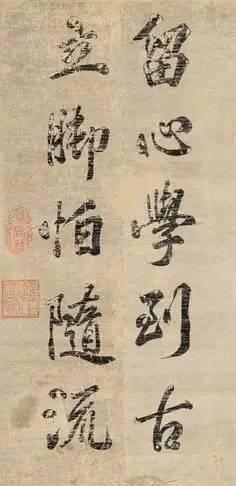 留心學到古
立脚怕隨流